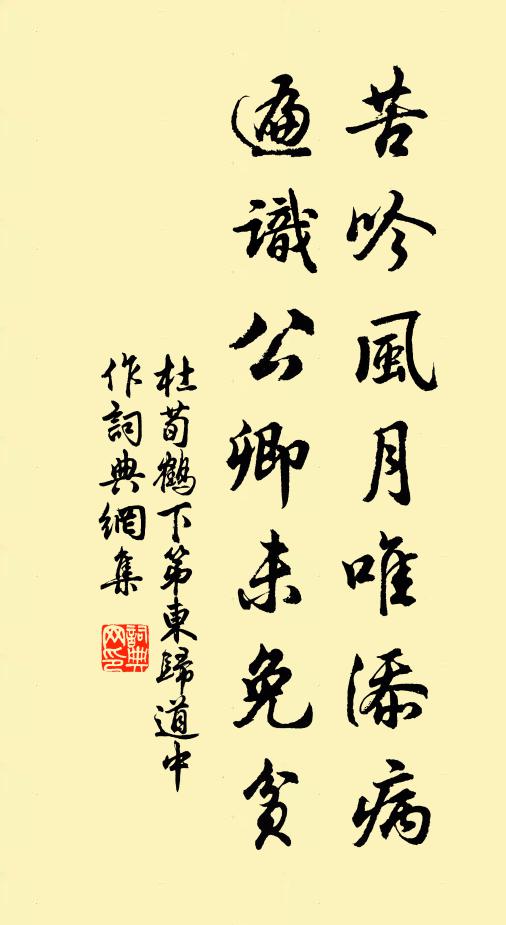 苦吟風月唯添病
遍識公卿未免貧
杜荀鶴下第東歸道中
作詞典網集
詞典
网印